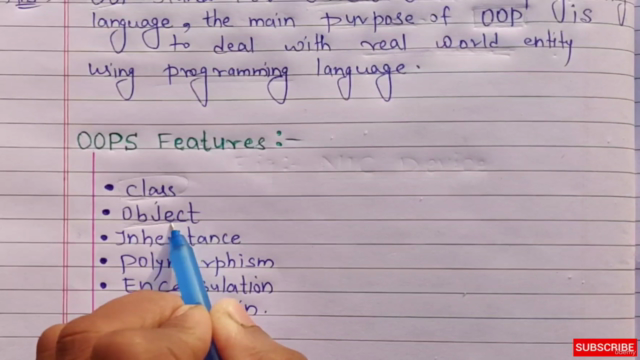 language, the main purpose of OOP is
to deal with real world entity
using programming language.
OOPS Features:-
• Class
• Object
• Inheritance
• Polymorphism
• Encapsulation
SUBSCRIBE